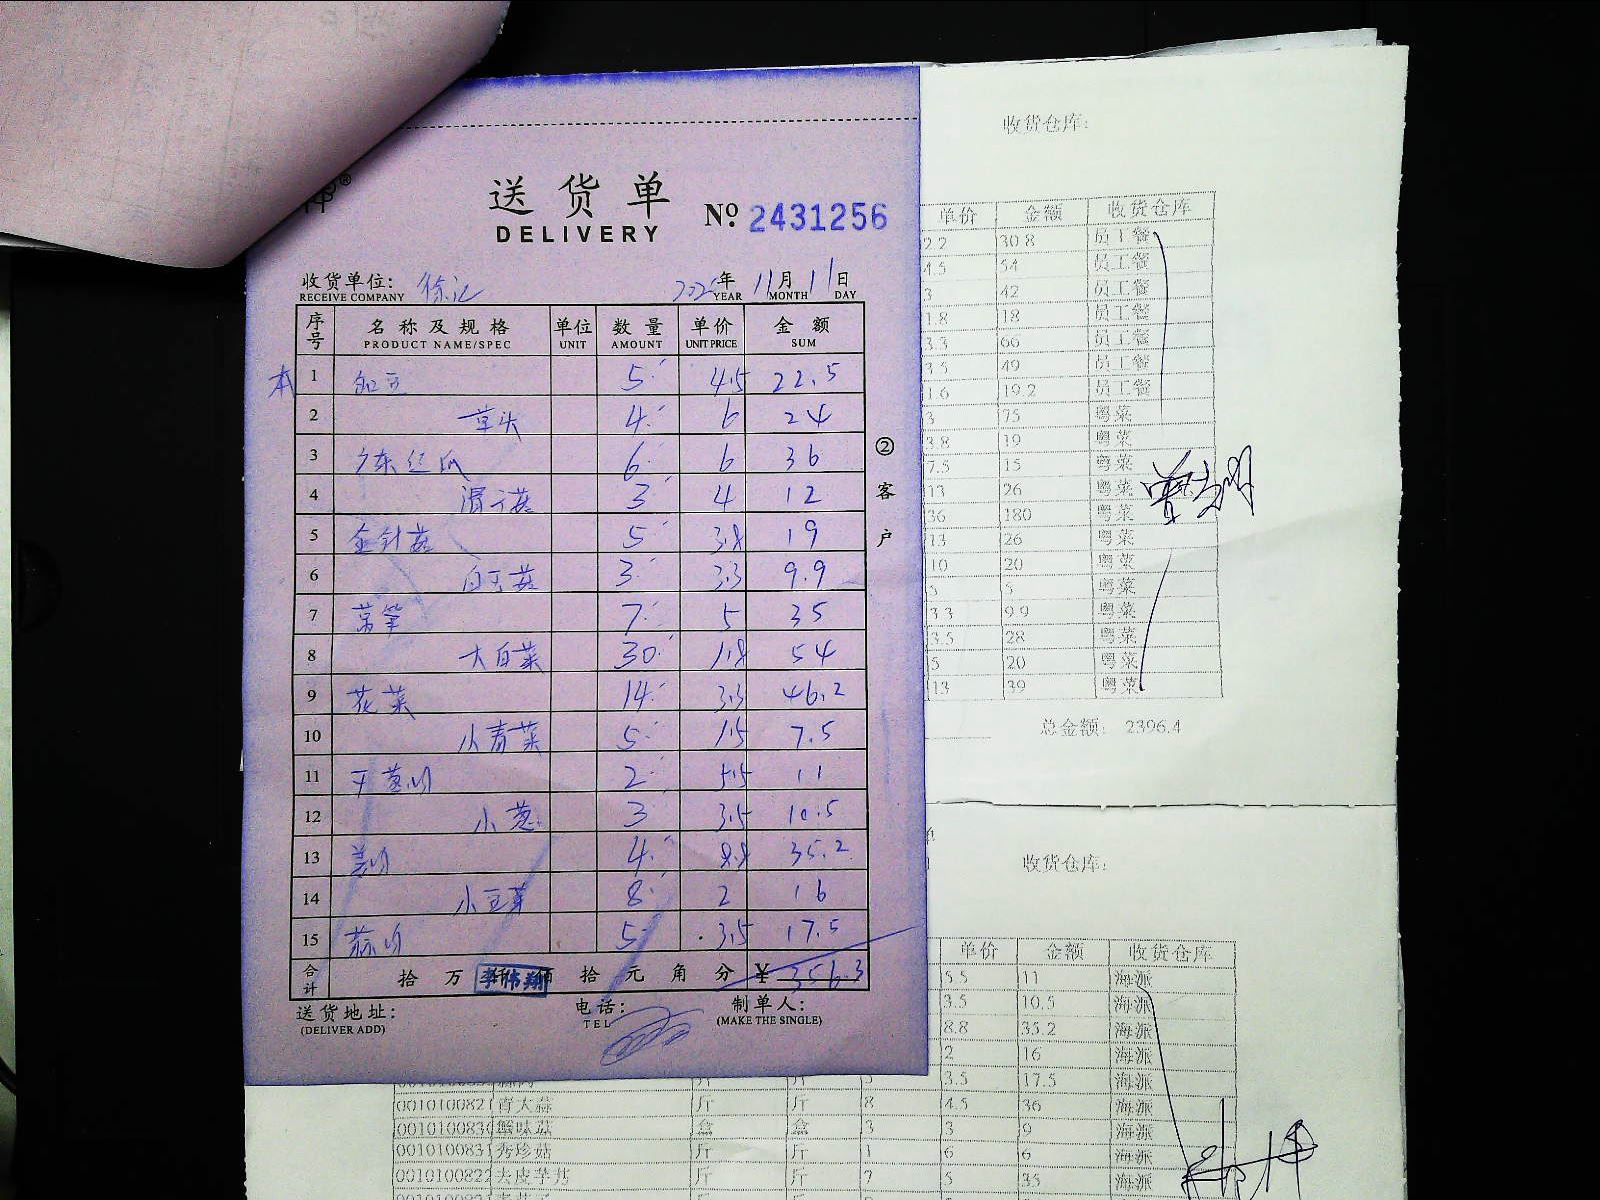 送货单
DELIVERY
№ 2431256
收货单位: 徐记 年 11月11日
RECEIVE COMPANY YEAR MONTH DAY
序号 名称及规格 单位 数量 单价 金额
PRODUCT NAME/SPEC UNIT AMOUNT UNIT PRICE SUM
本 1 5 4.5 22.5
2 草头 4 6 24
3 6 6 36
4 滑子菇 3 4 12
5 金针菇 5 3.8 19
6 白玉菇 3 3.3 9.9
7 7 5 35
8 大白菜 30 1.8 54
9 花菜 14 3.3 46.2
10 小青菜 5 1.5 7.5
11 2 5.5 11
12 小葱 3 3.5 10.5
13 姜肉 4 8.8 35.2
14 小豆芽 8 2 16
15 蒜肉 5 3.5 17.5
合计 拾 万 仟 佰 拾 元 角 分 ¥ 356.3
李伟翔
送货地址: 电话: 制单人:
(DELIVER ADD) TEL (MAKE THE SINGLE)
②客户
收货仓库:
单价 金额 收货仓库
2.2 30.8 员工餐
4.5 54 员工餐
3 42 员工餐
1.8 18 员工餐
3.3 66 员工餐
3.5 49 员工餐
1.6 19.2 员工餐
3 75 粤菜
3.8 19 粤菜
7.5 15 粤菜
13 26 粤菜
36 180 粤菜
13 26 粤菜
10 20 粤菜
5 5 粤菜
3.3 9.9 粤菜
3.5 28 粤菜
5 20 粤菜
13 39 粤菜
总金额: 2396.4
收货仓库:
单价 金额 收货仓库
5.5 11 海派
3.5 10.5 海派
8.8 35.2 海派
2 16 海派
3.5 17.5 海派
0010100821 青大蒜 斤 斤 8 4.5 36 海派
001010083 蟹味菇 盒 盒 3 3 9 海派
0010100831 秀珍菇 斤 斤 1 6 6 海派
0010100822 去皮芋艿 斤 斤 7 5 35 海派